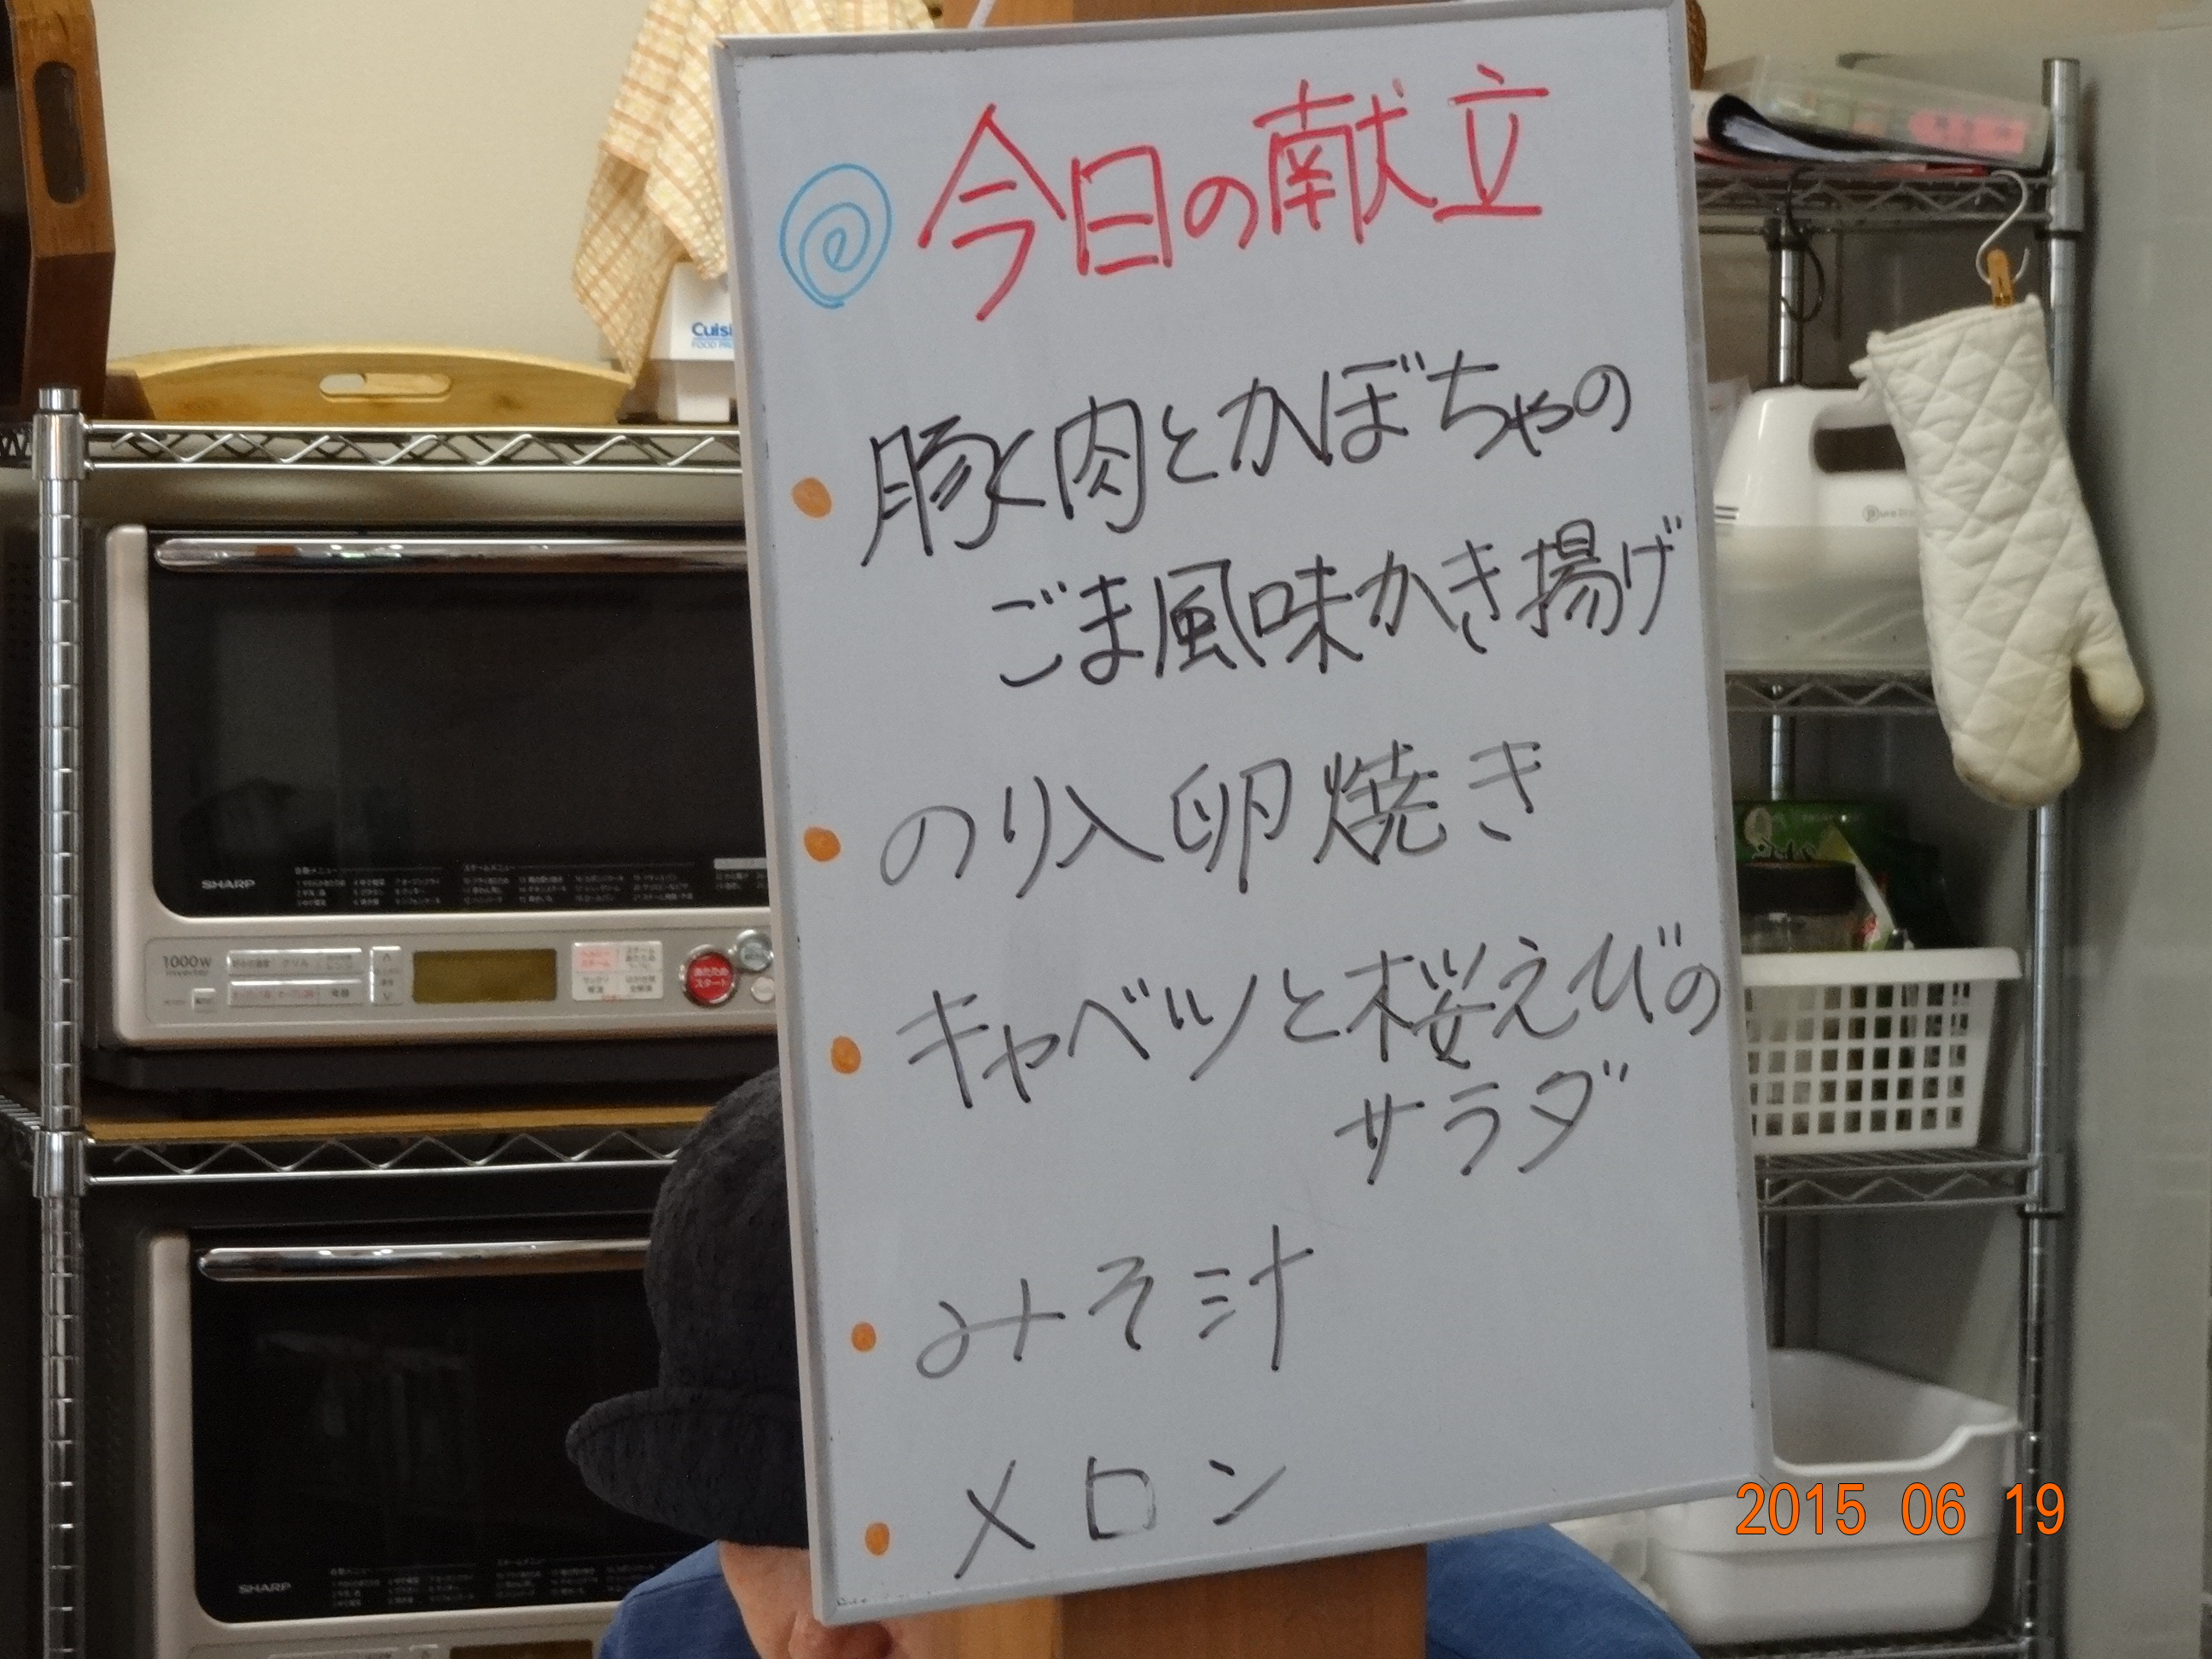 今日の献立
・豚肉とかぼちゃの
ごま風味かき揚げ
・のり入卵焼き
・キャベツと桜えびの
サラダ
・みそ汁
・メロン
SHARP
1000w
あたため
スタート
SHARP
2015 06 19